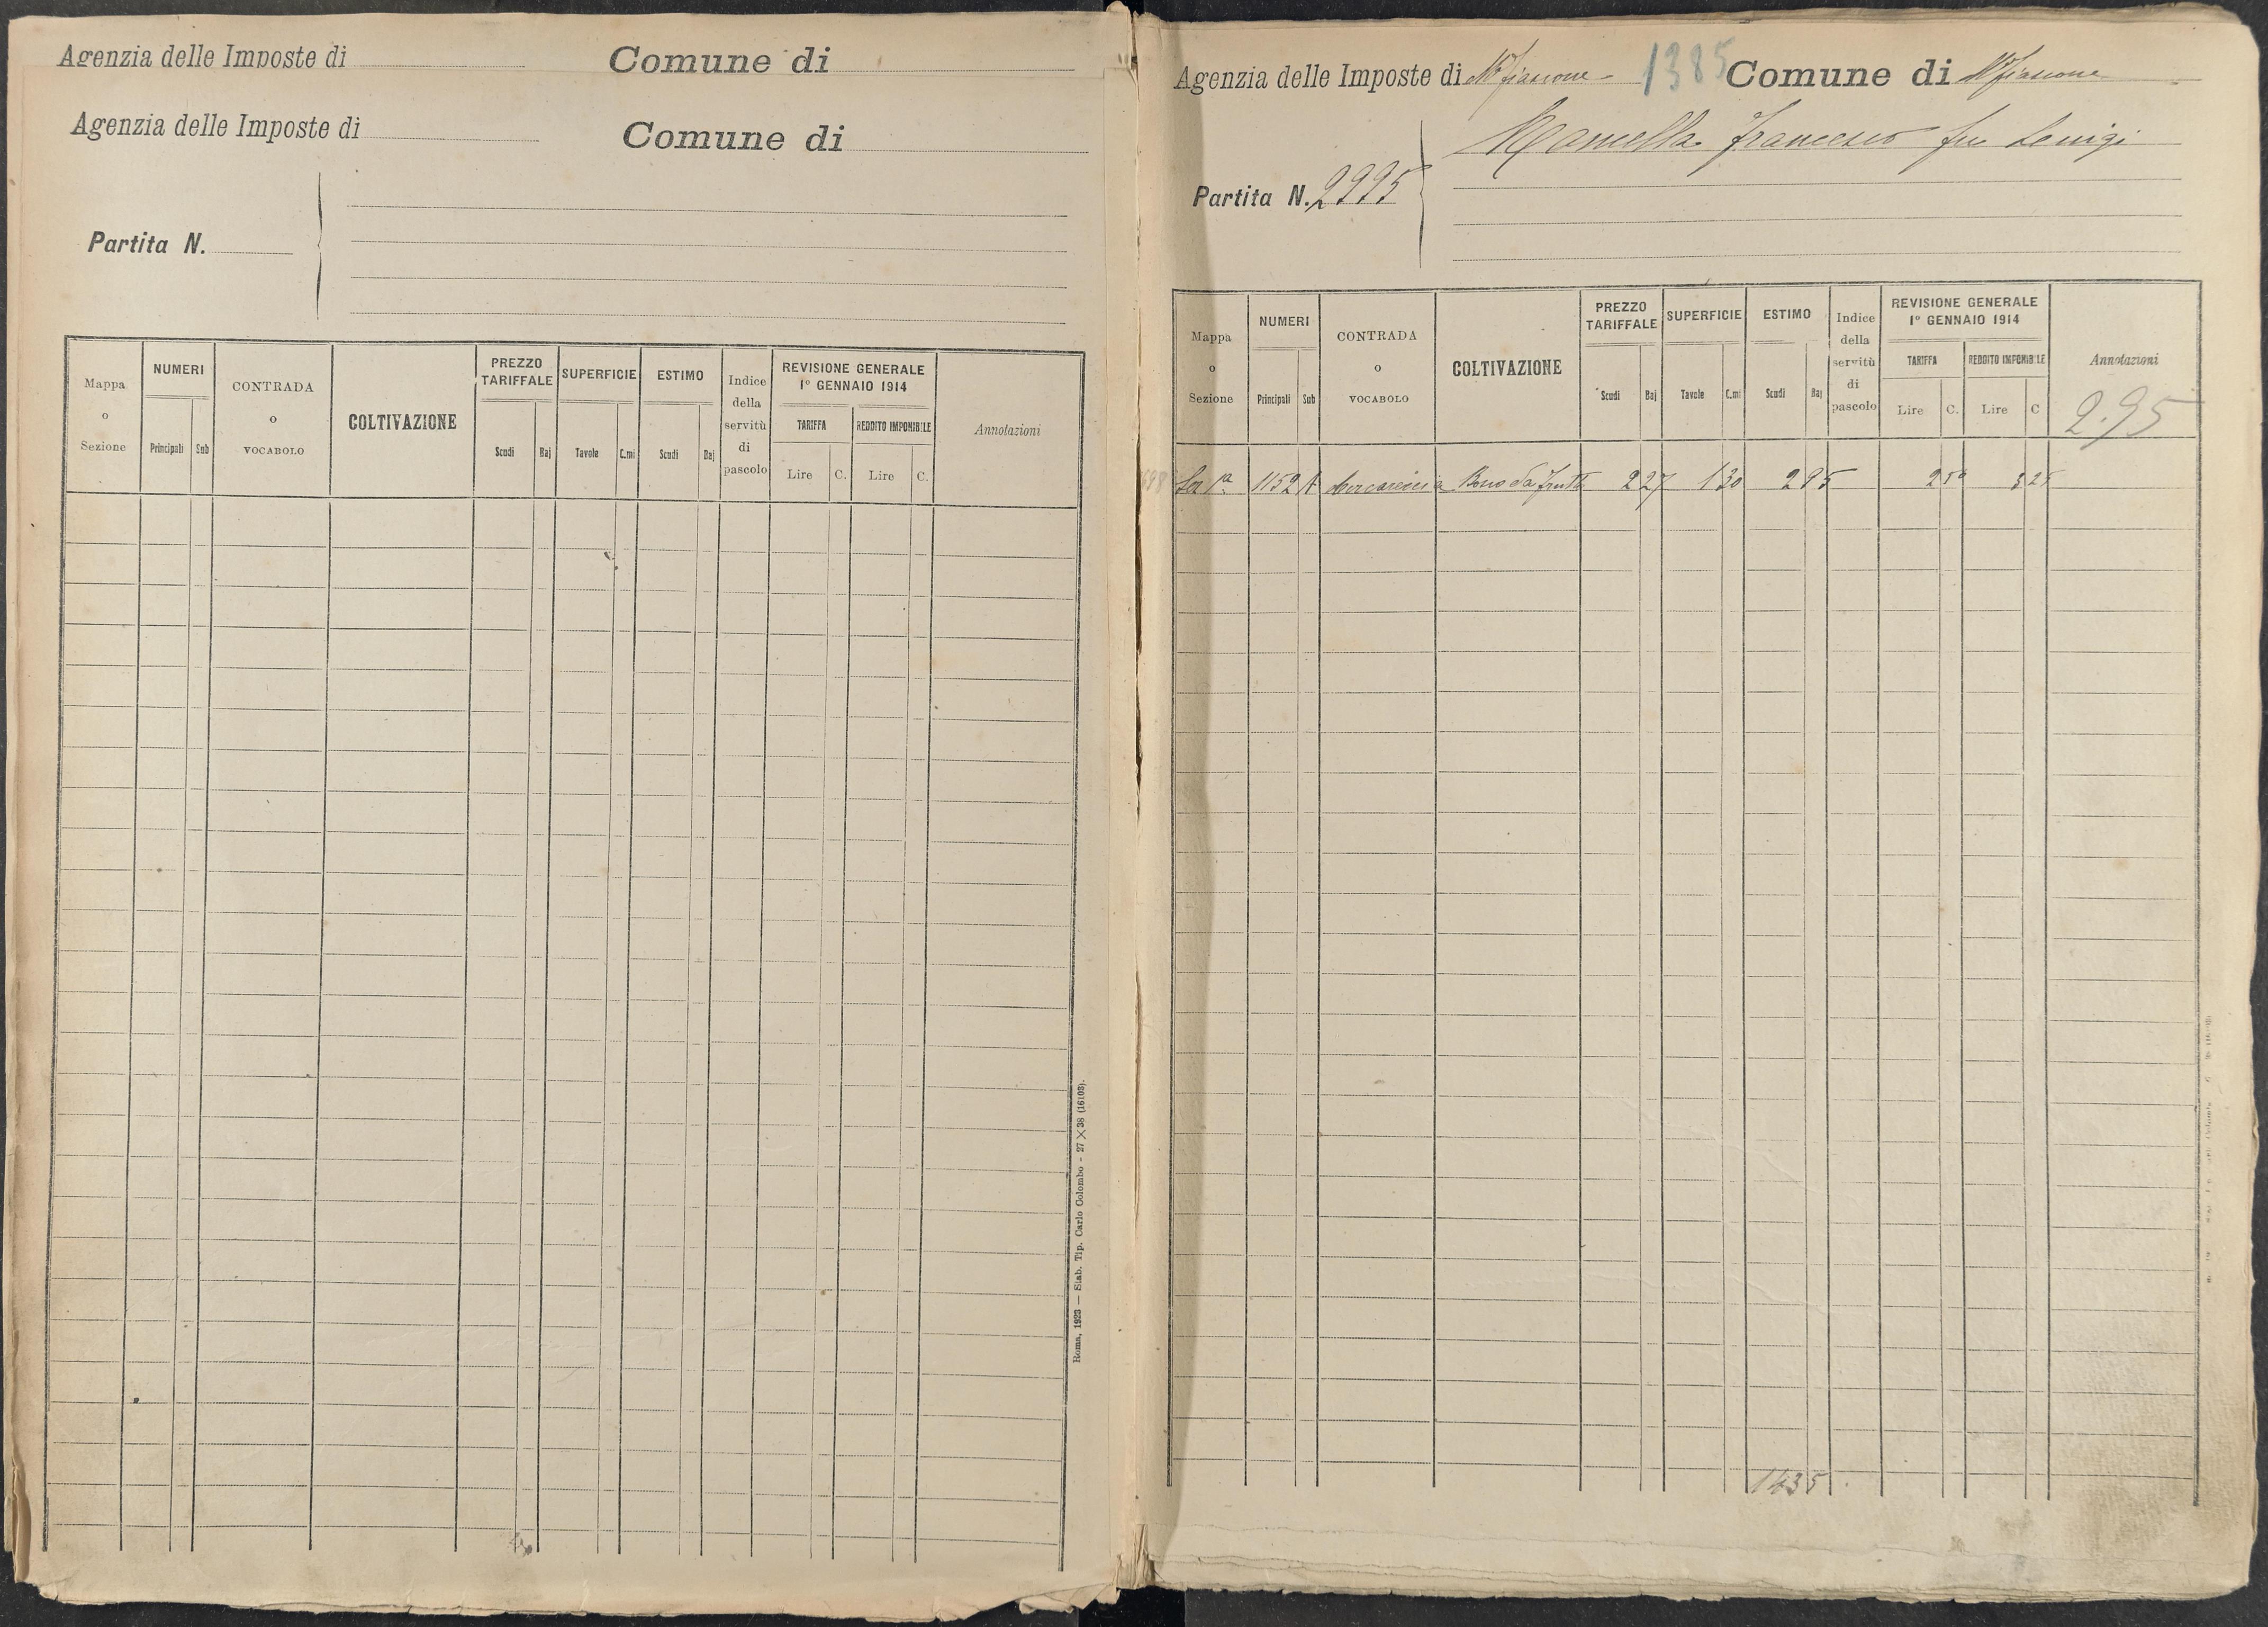 Agenzia delle Imposte di
Comune di
Agenzia delle Imposte di
Comune di
Partita N.
Mappa o Sezione
NUMERI
Principali Sub
CONTRADA o VOCABOLO
COLTIVAZIONE
PREZZO TARIFFALE
Scudi Baj
SUPERFICIE
Tavole C.mi
ESTIMO
Scudi Baj
Indice della servitù di pascolo
REVISIONE GENERALE
1º GENNAIO 1914
TARIFFA
Lire C.
REDDITO IMPONIBILE
Lire C.
Annotazioni
Roma, 1923 — Stab. Tip. Carlo Colombo - 27 X 38 (16103).
Agenzia delle Imposte di Mfiascone
1385
Comune di Mfiascone
Partita N. 2995
Francesco fu Luigi
Mappa o Sezione
NUMERI
Principali Sub
CONTRADA o VOCABOLO
COLTIVAZIONE
PREZZO TARIFFALE
Scudi Baj
SUPERFICIE
Tavole C.mi
ESTIMO
Scudi Baj
Indice della servitù di pascolo
REVISIONE GENERALE
1º GENNAIO 1914
TARIFFA
Lire C.
REDDITO IMPONIBILE
Lire C
Annotazioni
2.95
1152 da frutto 227 130 295 250 325
1435